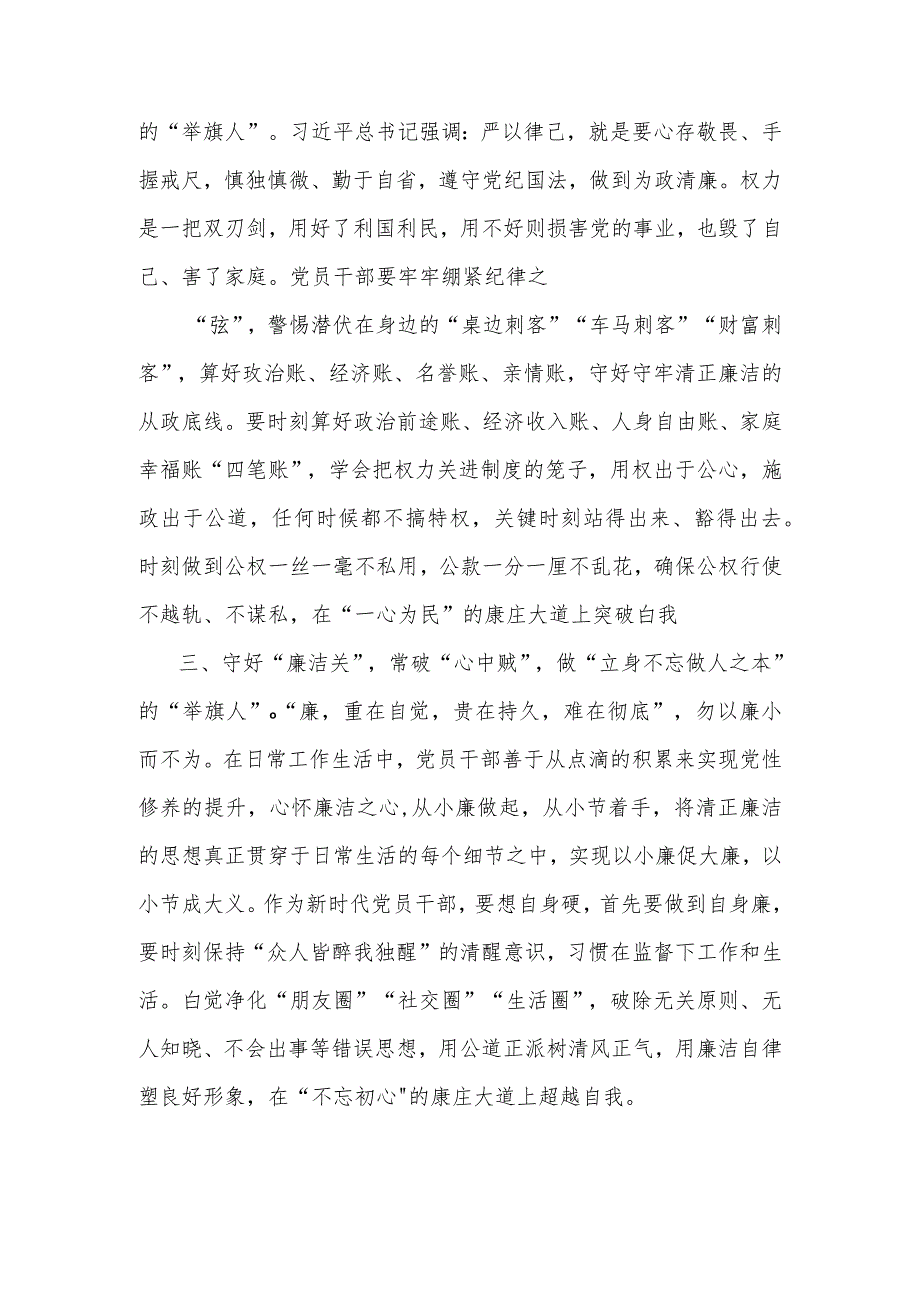 的“举旗人”。习近平总书记强调：严以律己，就是要心存敬畏、手
握戒尺，慎独慎微、勤于自省，遵守党纪国法，做到为政清廉。权力
是一把双刃剑，用好了利国利民，用不好则损害党的事业，也毁了自
己、害了家庭。党员干部要牢牢绷紧纪律之
“弦”，警惕潜伏在身边的“桌边刺客”“车马刺客”“财富刺
客”，算好玫治账、经济账、名誉账、亲情账，守好守牢清正廉洁的
从政底线。要时刻算好政治前途账、经济收入账、人身自由账、家庭
幸福账“四笔账”，学会把权力关进制度的笼子，用权出于公心，施
政出于公道，任何时候都不搞特权，关键时刻站得出来、豁得出去。
时刻做到公权一丝一毫不私用，公款一分一厘不乱花，确保公权行使
不越轨、不谋私，在“一心为民”的康庄大道上突破白我
三、守好“廉洁关”，常破“心中贼”，做“立身不忘做人之本”
的“举旗人”。“廉，重在自觉，贵在持久，难在彻底”，勿以廉小
而不为。在日常工作生活中，党员干部善于从点滴的积累来实现党性
修养的提升，心怀廉洁之心,从小廉做起，从小节着手，将清正廉洁
的思想真正贯穿于日常生活的每个细节之中，实现以小廉促大廉，以
小节成大义。作为新时代党员干部，要想自身硬，首先要做到自身廉，
要时刻保持“众人皆醉我独醒”的清醒意识，习惯在监督下工作和生
活。白觉净化“朋友圈”“社交圈”“生活圈”，破除无关原则、无
人知晓、不会出事等错误思想，用公道正派树清风正气，用廉洁自律
塑良好形象，在“不忘初心"的康庄大道上超越自我。